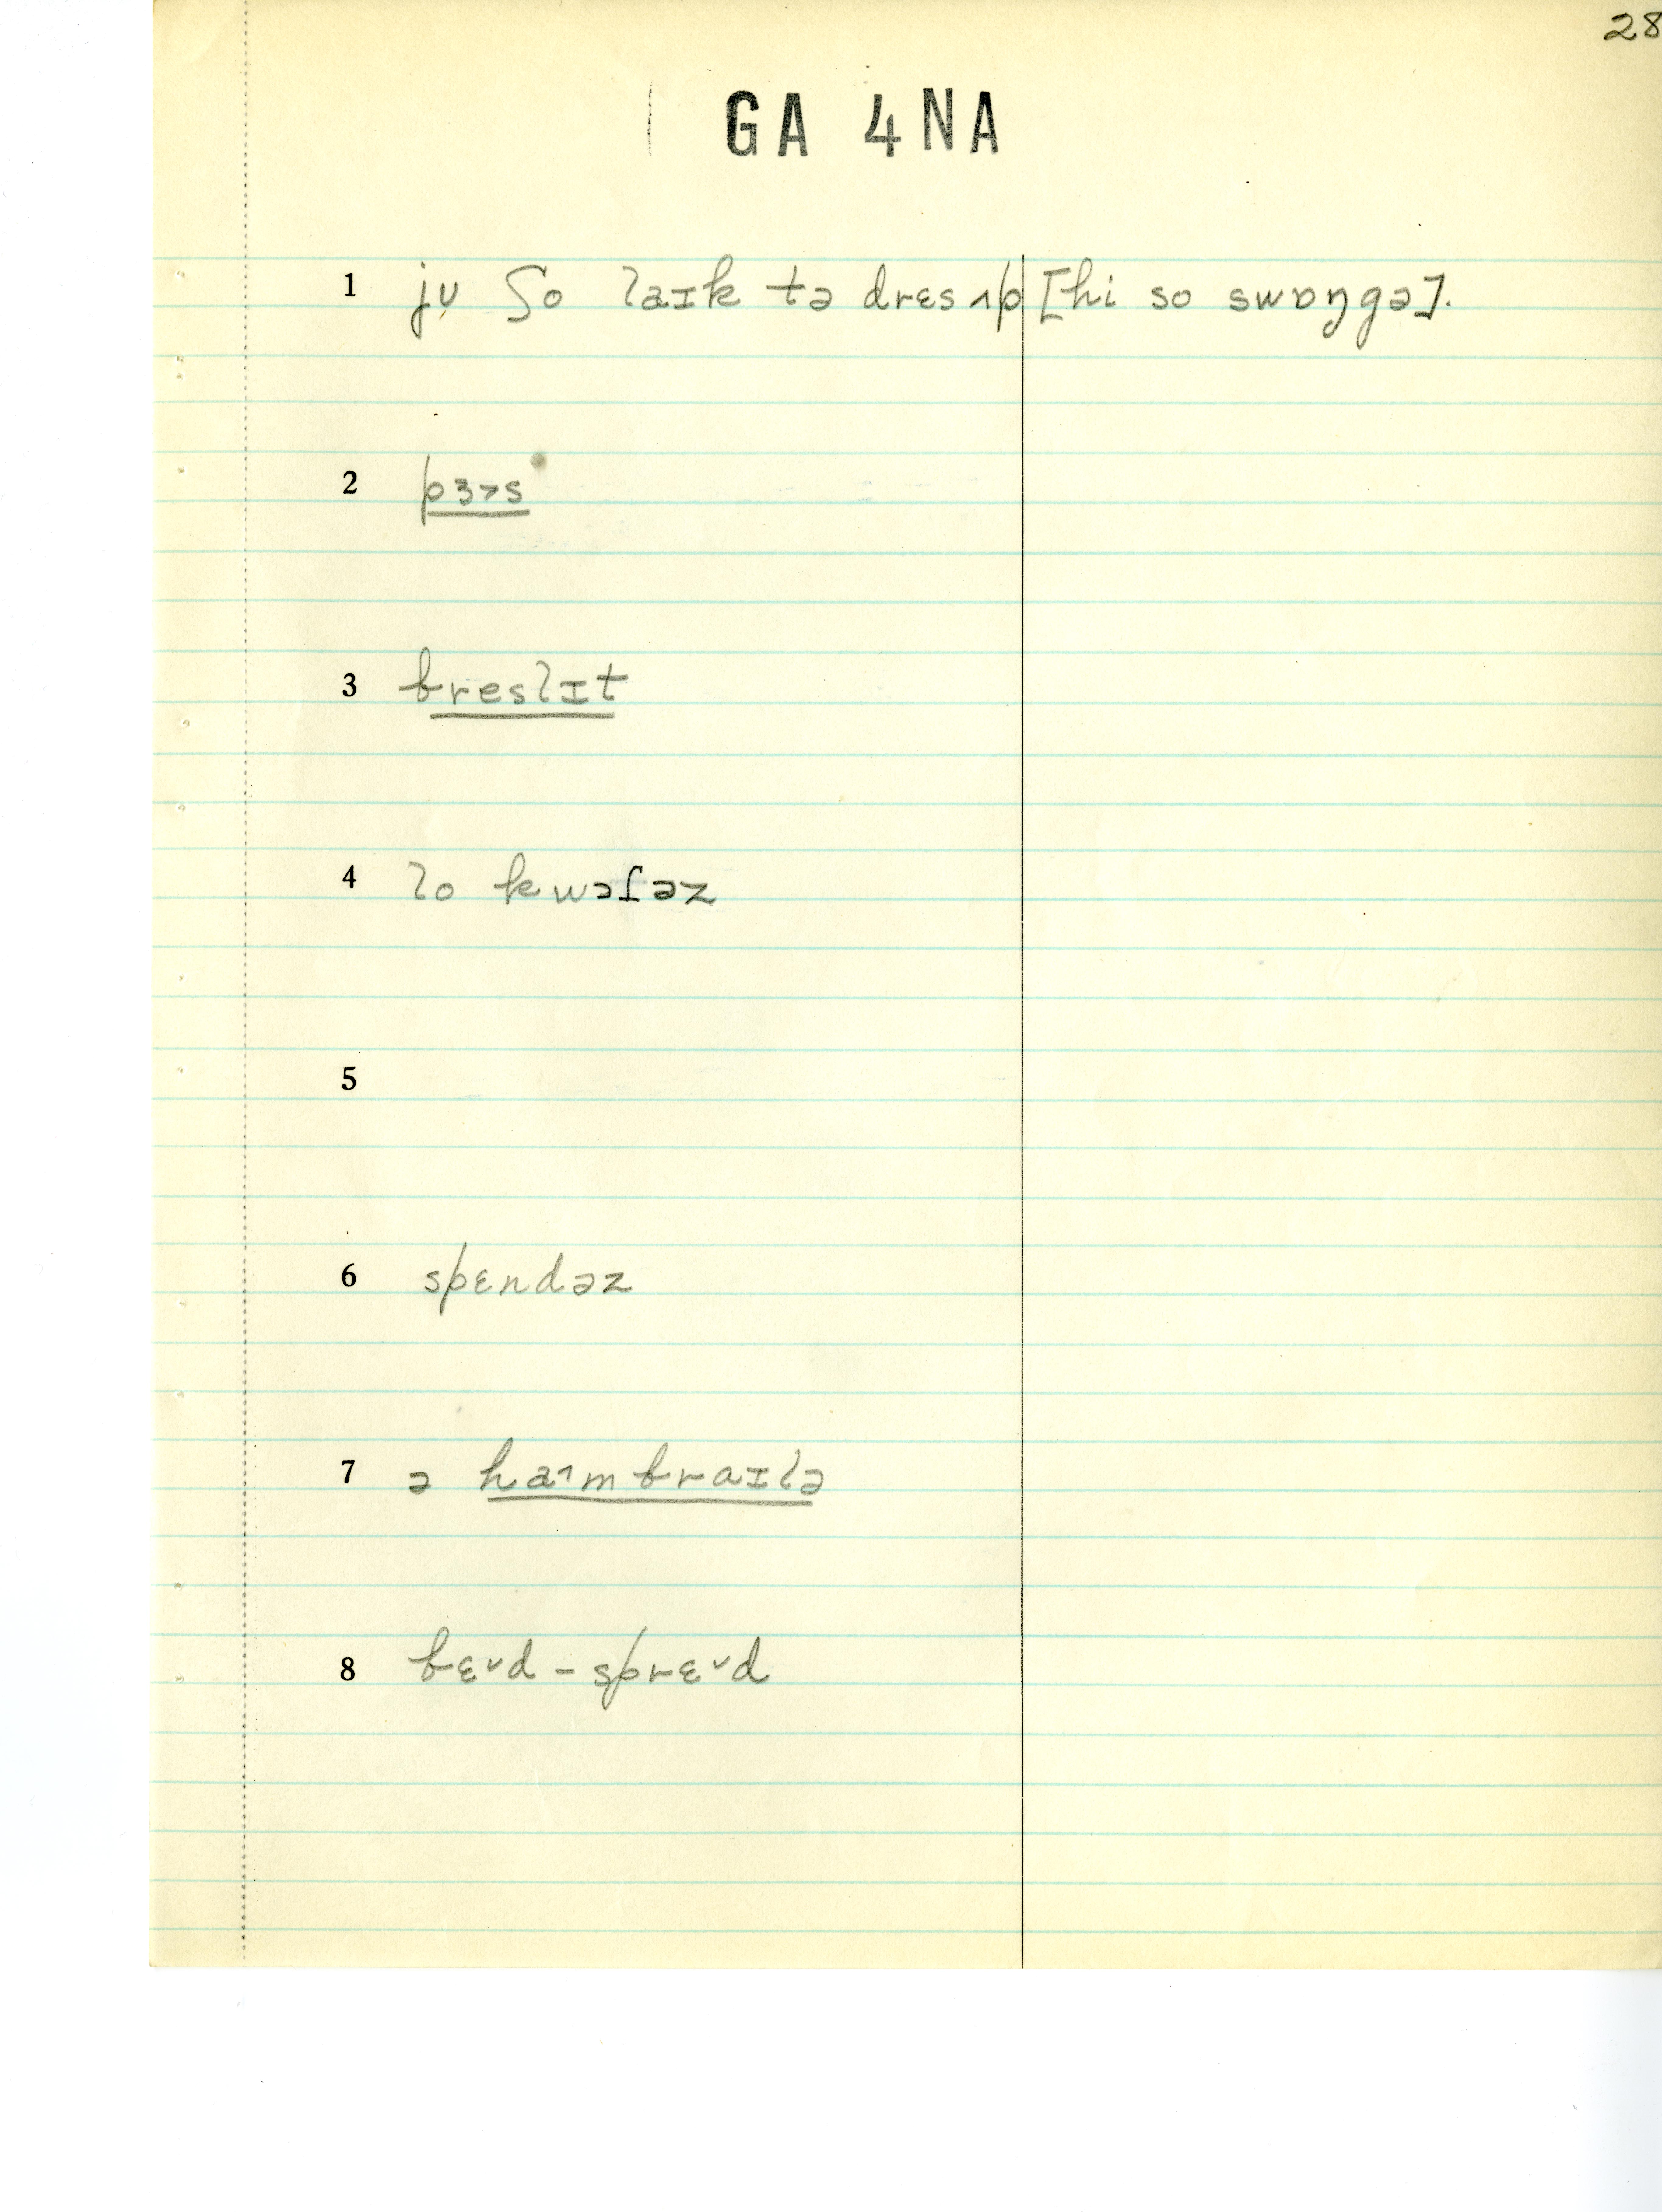 28
GA 4NA
1 jʊ ʃo laɪk tə drɛs ʌp [hi so swɒŋgə].
2 pɜ˞s
3 breslɪt
4 lo kwɔʃəz
5
6 spɛndəz
7 ə haɪm braɪlə
8 bɛ˅d – sprɛ˅d